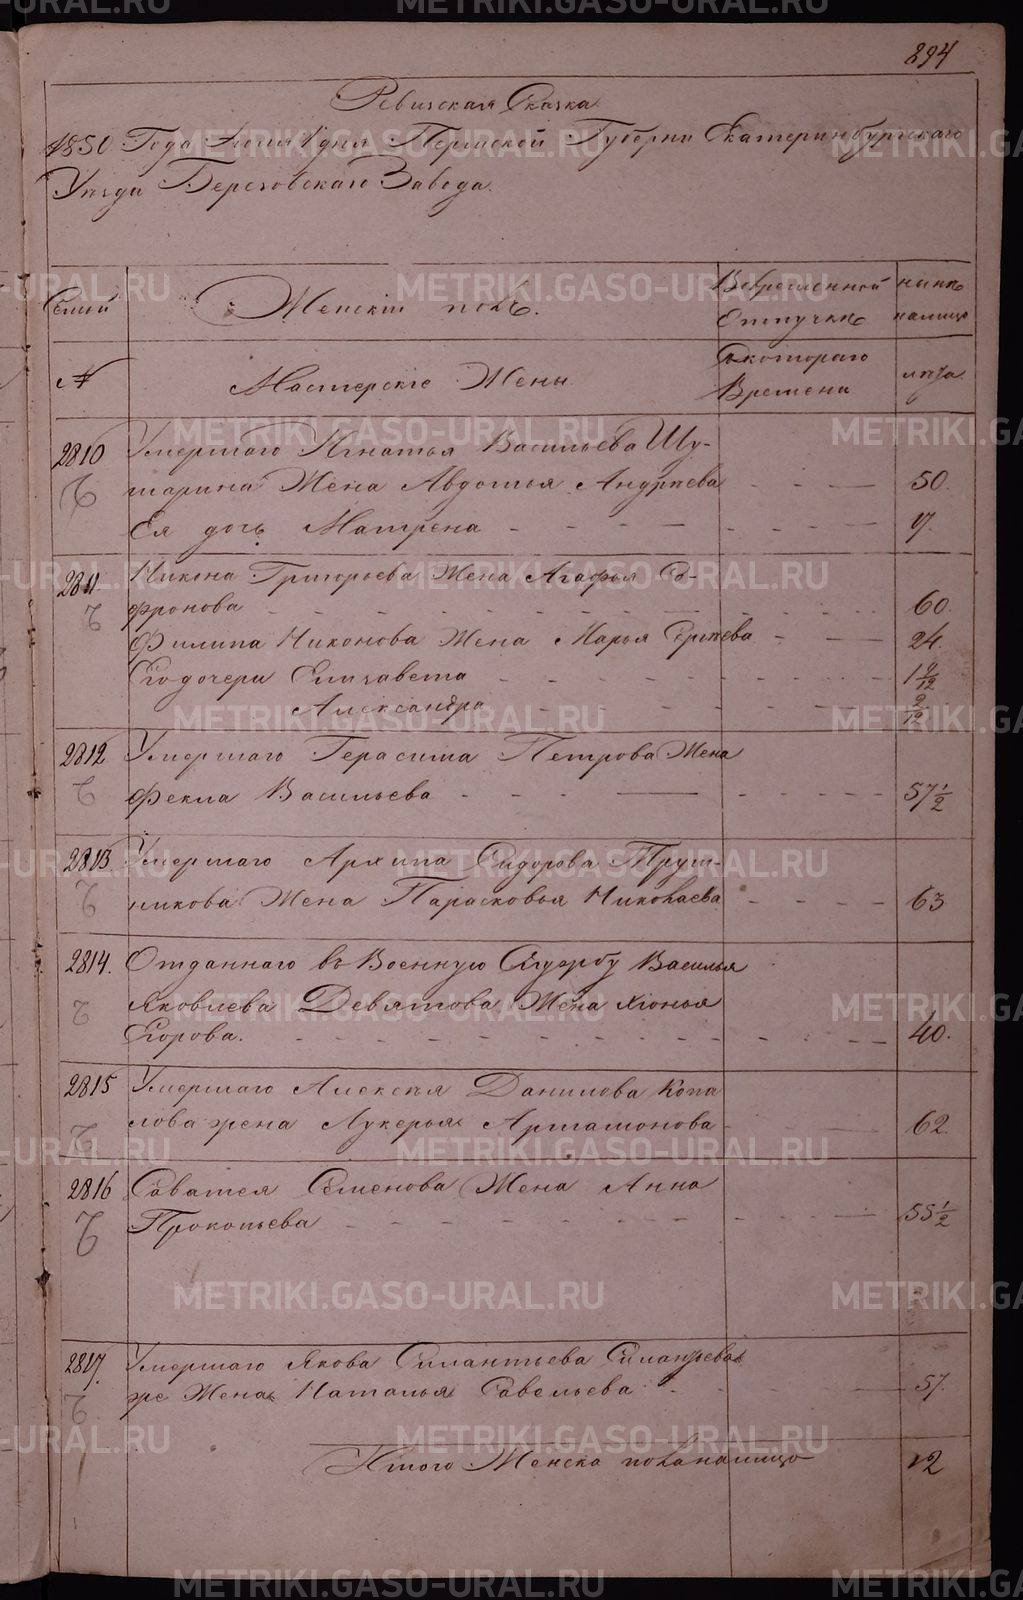 294
Ревизская Сказка
1850 Года Июля 1 дня Пермской Губерни Екатеринбургскаго
Уезда Березовскаго Завода.
Семьи
Женский полъ.
Вовременной
Отлучкѣ
нынѣ
налицо
№
Мастерскіе Жены.
Скотораго
Времени
лѣта
2810 Умершаго Игнатья Васильева Шу-
шарина Жена Авдотья Андрѣева 50.
Ея дочь Матрена 17.
2811. Никона Григорьева Жена Агафья Со-
фронова 60.
Филипа Никонова Жена Марья Сергѣева 24.
Его дочери Елизавета 1 9/12
Александра 2/12
2812 Умершаго Герасима Петрова Жена
Фекла Васильева 57 1/2
2813 Умершаго Архипа Сидорова Труш-
никова Жена Парасковья Николаева 63
2814. Отданнаго въ Военную Службу Василья
Яковлева Девятова Жена Хіонья
Егорова. 40.
2815 Умершаго Алексѣя Данилова Копа
лова жена Лукерья Артамонова 62.
2816 Саватея Семенова Жена Анна
Прокопьева 55 1/2
2817. Умершаго Якова Силантьева Силантьева
же Жена Наталья Савельева 57.
Итого Женска пола налицо 12
METRIKI.GASO-URAL.RU